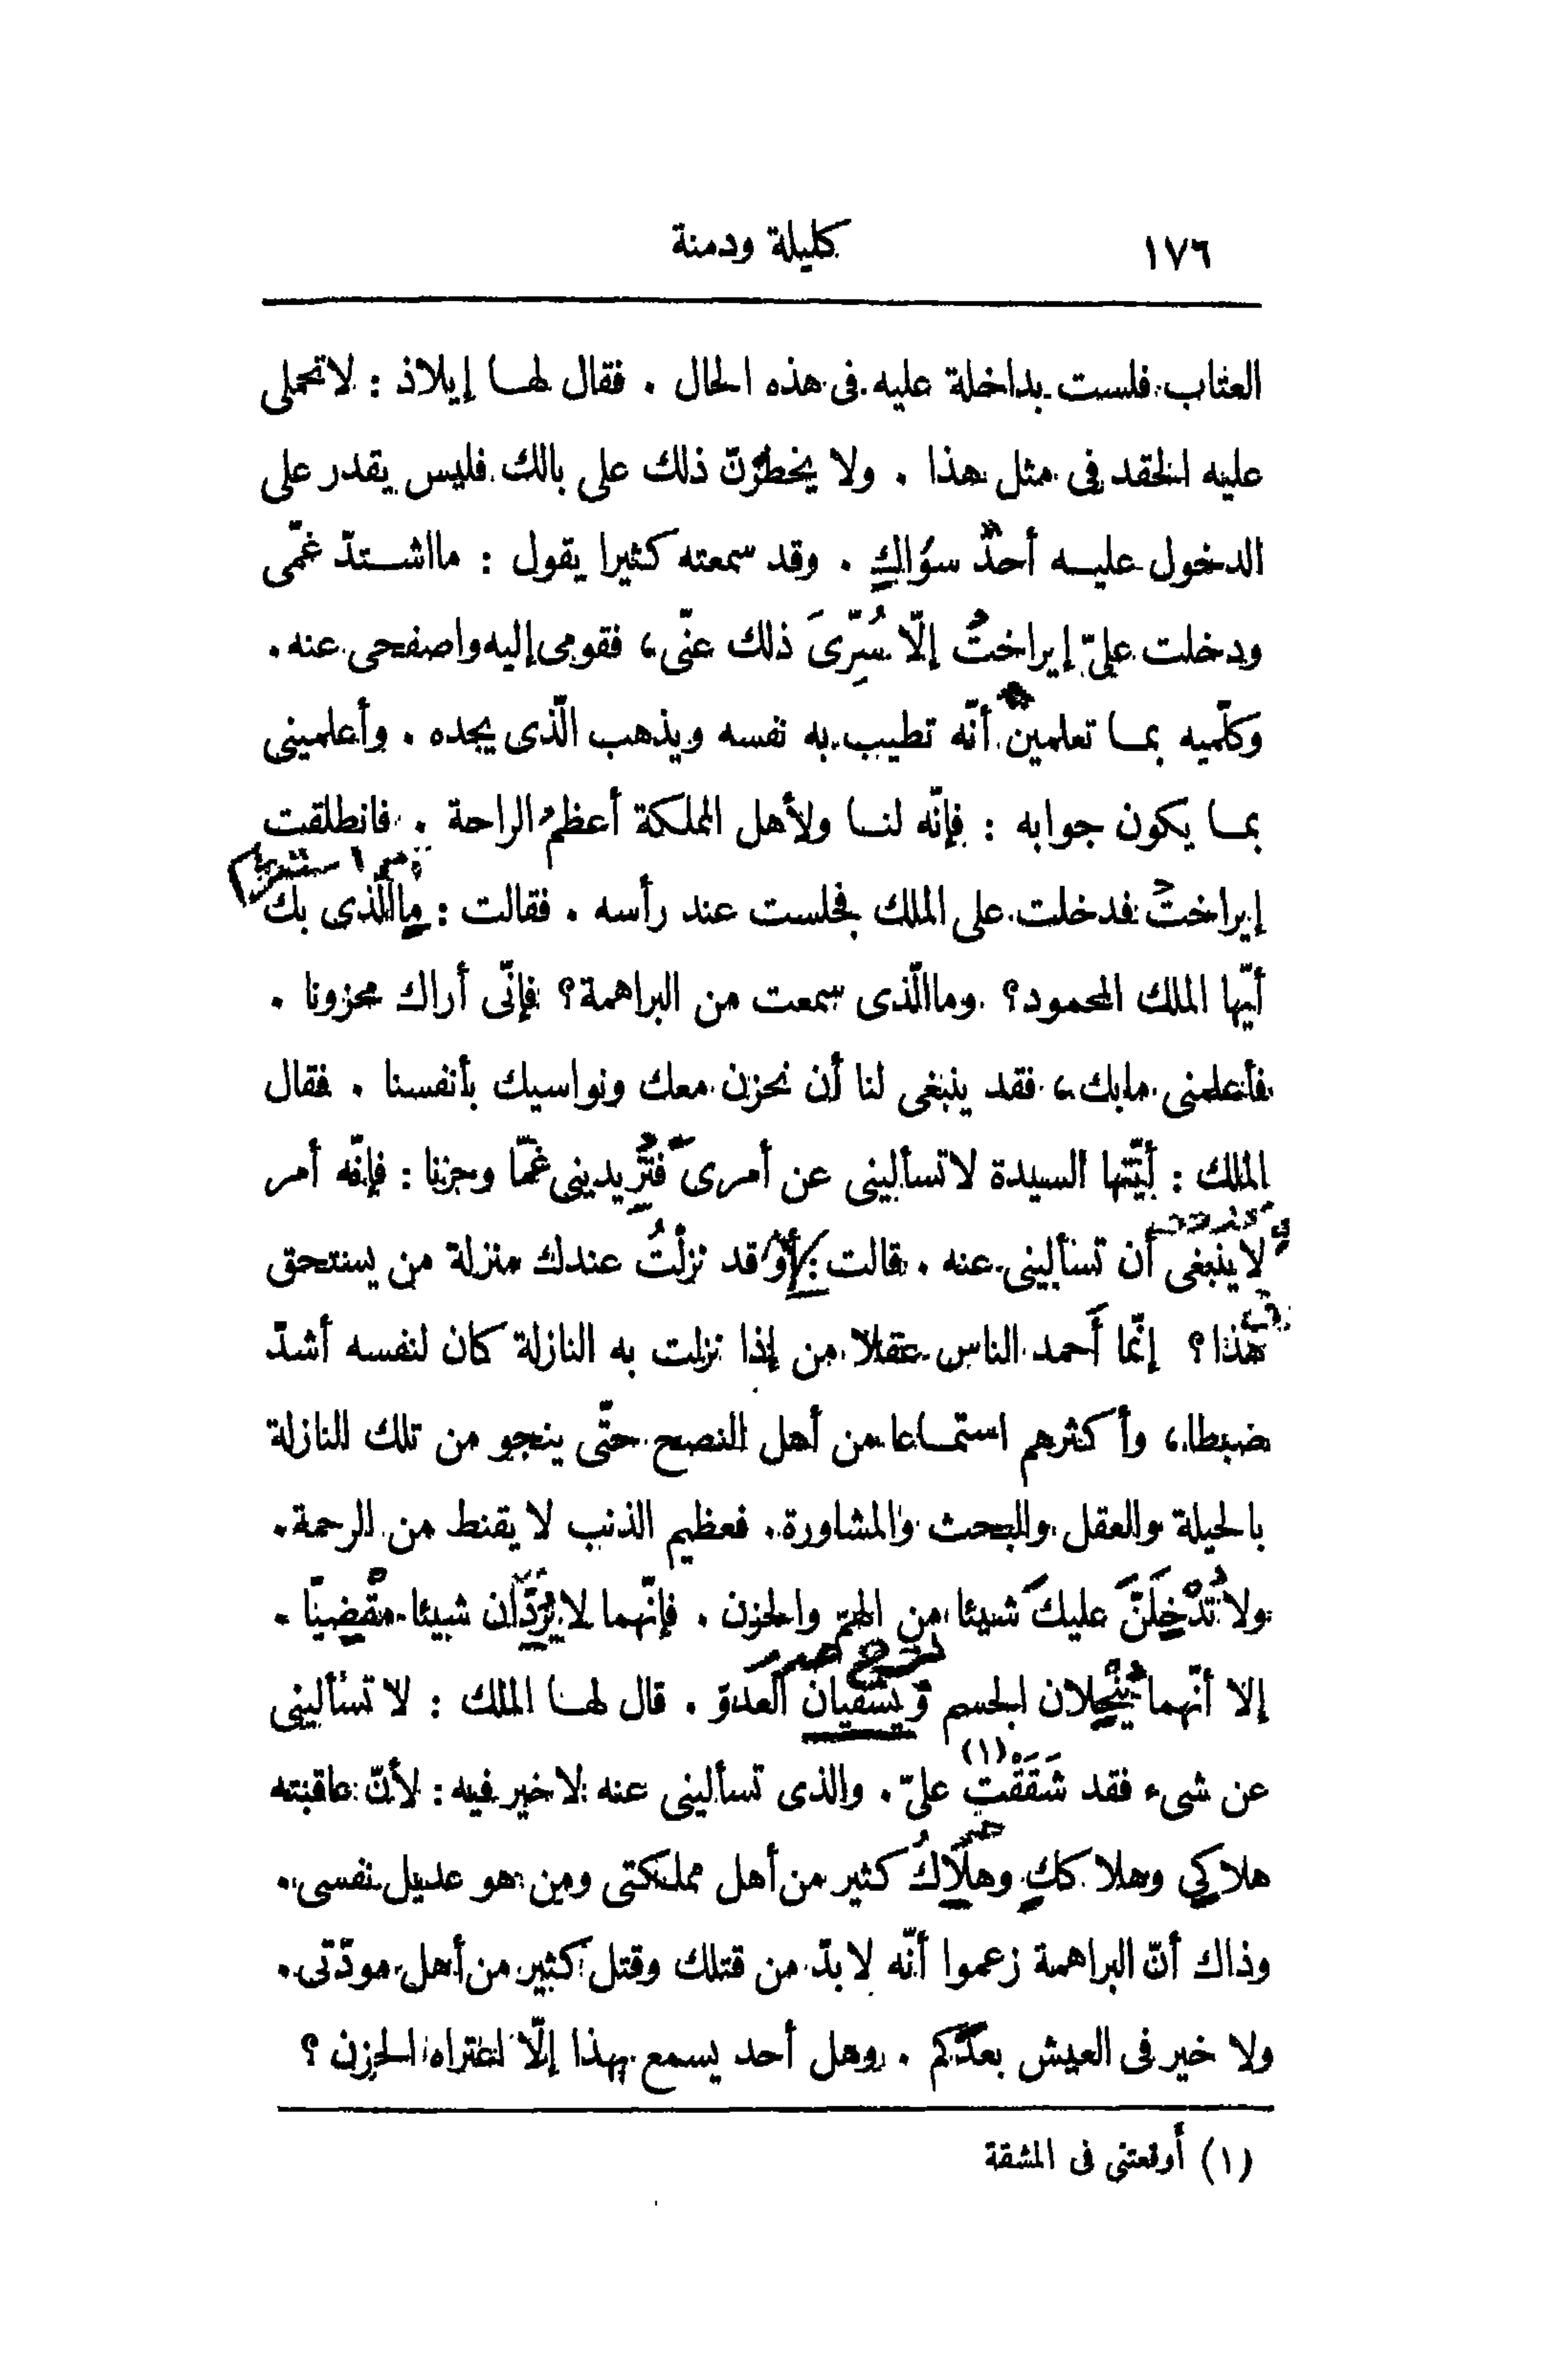 ١٧٦ كليلة ودمنة
العتاب فلست بداخلة عليه فى هذه الحال . فقال لها إيلاذ : لا تحملى
عليه الحقد فى مثل هذا . ولا يخطرنّ ذلك على بالك فليس يقدر على
الدخول عليه أحدٌ سؤالكِ . وقد سمعته كثيرا يقول : ما اشتدّ غمّى
ودخلت علىّ إيراختُ إلّا سُرِّىَ ذلك عنّى، فقومى إليه واصفحى عنه .
وكلّميه بما تعلمين أنّه تطيب به نفسه ويذهب الّذى يجده . وأعلمينى
بما يكون جوابه : فإنّه لنا ولأهل المملكة أعظم الراحة . فانطلقت
إيراخت فدخلت على الملك فجلست عند رأسه . فقالت : ما الّذى بك
أيّها الملك المحمود؟ وما الّذى سمعت من البراهمة؟ فإنّى أراك محزونا .
فأعلمنى ما بك، فقد ينبغى لنا أن نحزن معك ونواسيك بأنفسنا . فقال
الملك : أيّتها السيدة لا تسألينى عن أمرى فتزيدينى غمّا وحزنا : فإنّه أمر
لا ينبغى أن تسألينى عنه . قالت : أوَ قد نزلْتُ عندك منزلة من يستحق
هذا؟ إنّما أحمد الناس عقلا من إذا نزلت به النازلة كان لنفسه أشدّ
ضبطا، وأكثرهم استماعا من أهل النصح حتّى ينجو من تلك النازلة
بالحيلة والعقل والبحث والمشاورة . فعظيم الذنب لا يقنط من الرحمة .
ولا تُدْخِلَنَّ عليكَ شيئا من الهمّ والحزن . فإنّهما لا يَرُدّان شيئا مقْضِيّا .
إلا أنّهما يُنْحِلان الجسم ويشفيان العدوّ . قال لها الملك : لا تسألينى
عن شىء فقد شَقَقْتِ (١) علىّ . والذى تسألينى عنه لا خير فيه : لأنّ عاقبته
هلاكى وهلاككِ وهلَاكُ كثير من أهل مملكتى ومن هو عديل نفسى .
وذاك أنّ البراهمة زعموا أنّه لا بدّ من قتلك وقتل كثير من أهل مودّتى .
ولا خير فى العيش بعدكم . وهل أحد يسمع بهذا إلّا اعتراه الحزن ؟
(١) أوقعتنى فى المشقة